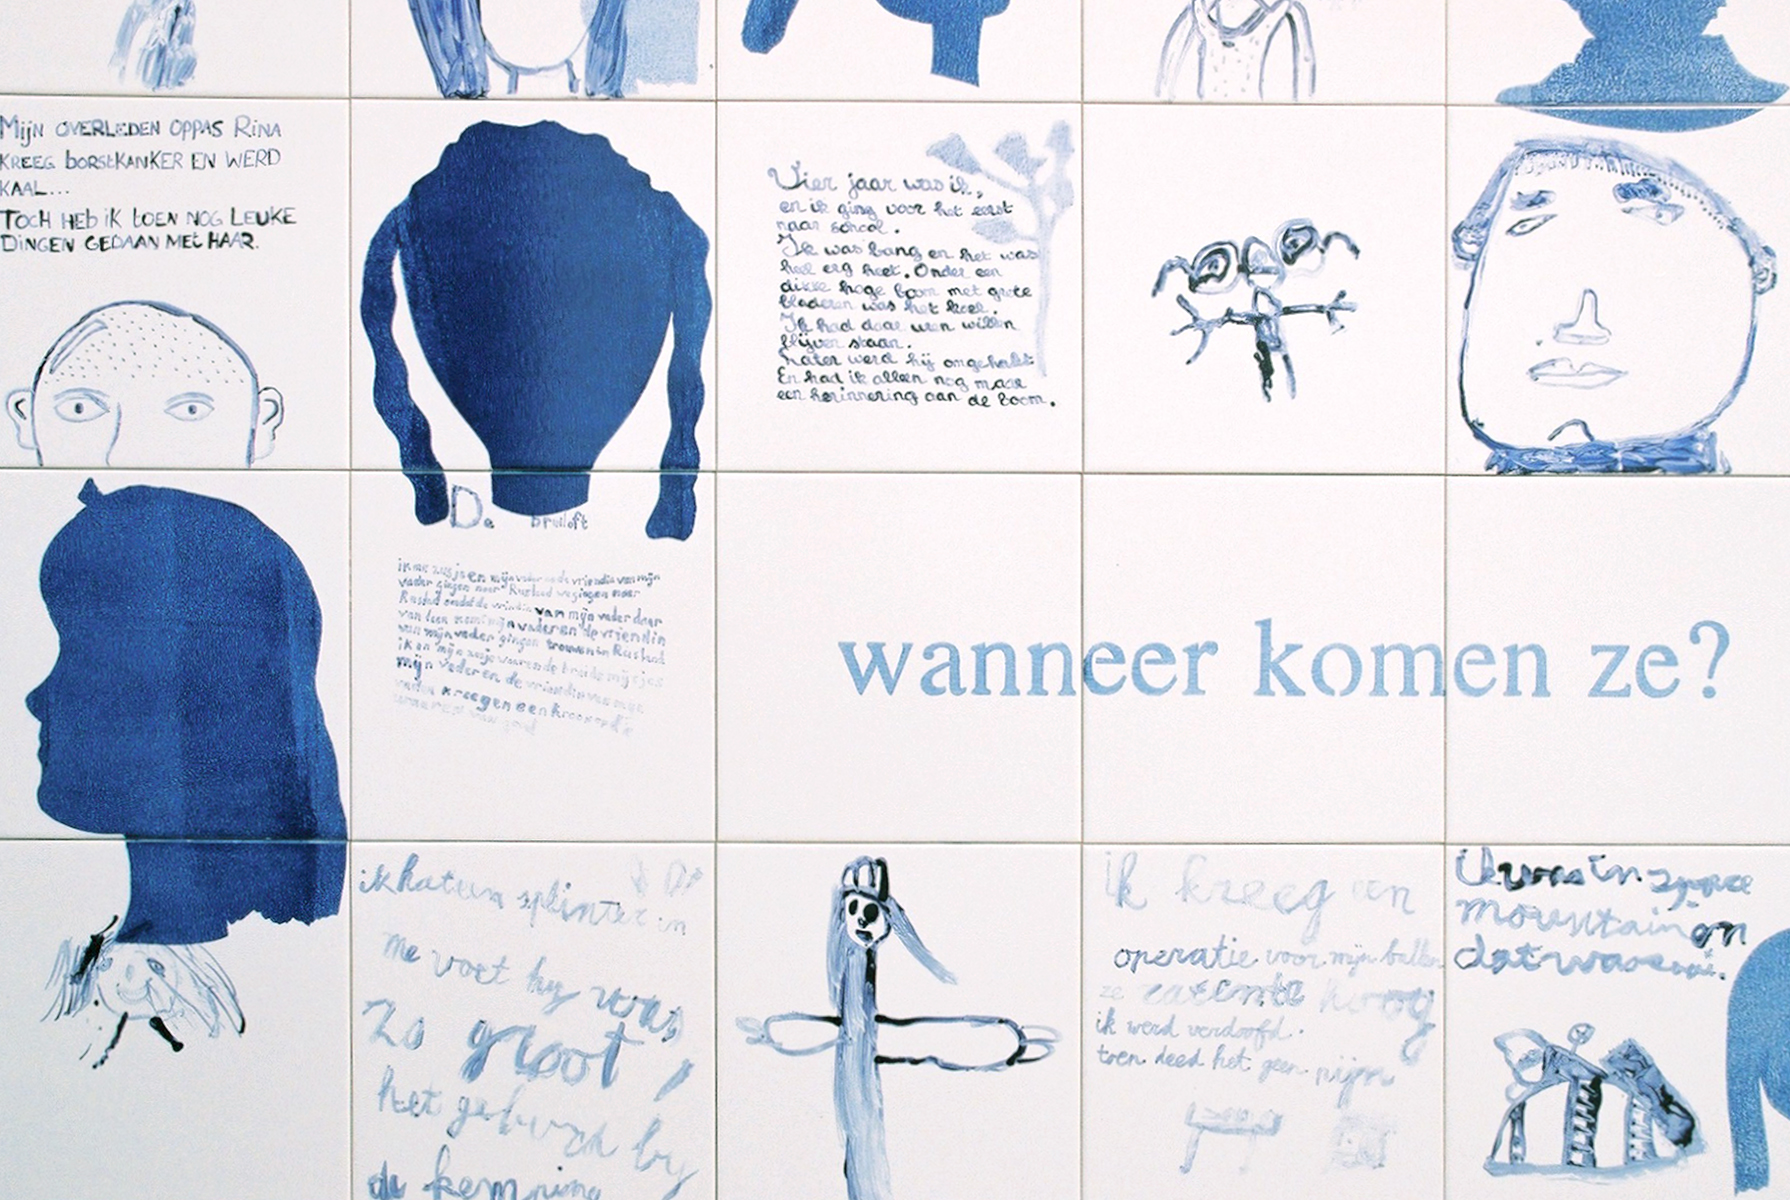 Mijn OVERLEDEN OPPAS RiNA
KREEG borstKANKER EN WERD
KAAL...
TOCH HEb iK tOEN NOG LEUKE
DiNGEN GEDAAN MEt HAAR.
Vier jaar was ik,
en ik ging voor het eerst
naar school.
Ik was bang en het was
heel erg heet. Onder een
dikke hoge boom met grote
bladeren was het koel.
Ik had daar wen willen
blijven staan.
Later werd hij omgehakt
En had ik alleen nog maar
een herinnering aan de boom.
De bruiloft
mijn vader en de vriendin van mijn
vader gingen naar Rusland we gingen naar
Rusland omdat de vriendin van mijn vader daar
van mijn vader en de vriendin
van mijn vader gingen trouwen in Rusland
ik en mijn zusje waren de bruidsmeisjes
mijn vader en de vriendin van mijn
vader kregen een kroon op
wanneer komen ze?
ik hat een splinter in
me voet hij was
Zo groot,
het geburd bij
de kemping
ik kreeg een
operatie voor mijn ballen
ze zatente hoog
ik werd verdoofd.
toen deed het geen pijn
ik was in space
mountain en
dat was